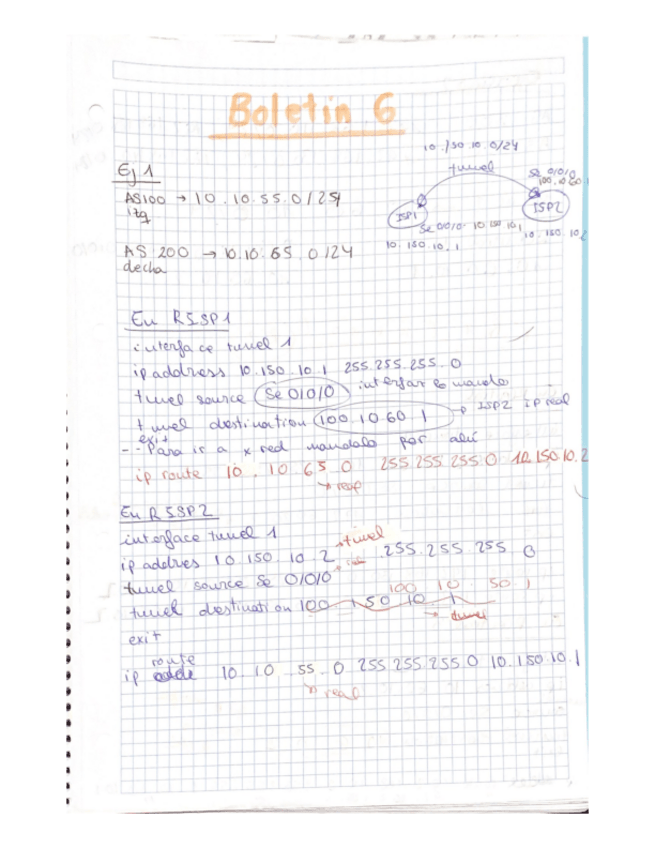 Boletin 6
10.150.10.0/24
tunel
Ej 1
Se 0/0/0
100.10.60.1
AS100 → 10.10.55.0/24
izq
ISP1
ISP2
Se 0/0/0
10.150.10.1
10.150.10.2
10.150.10.1
AS 200 → 10.10.65.0/24
decha
En RISP1
interface tunel 1
ip address 10.150.10.1 255.255.255.0
tunel source Se 0/0/0 interfaz mando
tunel destination 100.10.60.1 → ISP2 ip real
exit
-- Para ir a x red mandalo por ahi
ip route 10.10.65.0 255.255.255.0 10.150.10.2
↳ real
En RISP2
interface tunel 1
→ tunel
ip addres 10.150.10.2 255.255.255.0
tunel source Se 0/0/0
100.10.50.1
tunel destination 100.150.10.1
exit
route
ip 10.10.55.0 255.255.255.0 10.150.10.1
↳ real